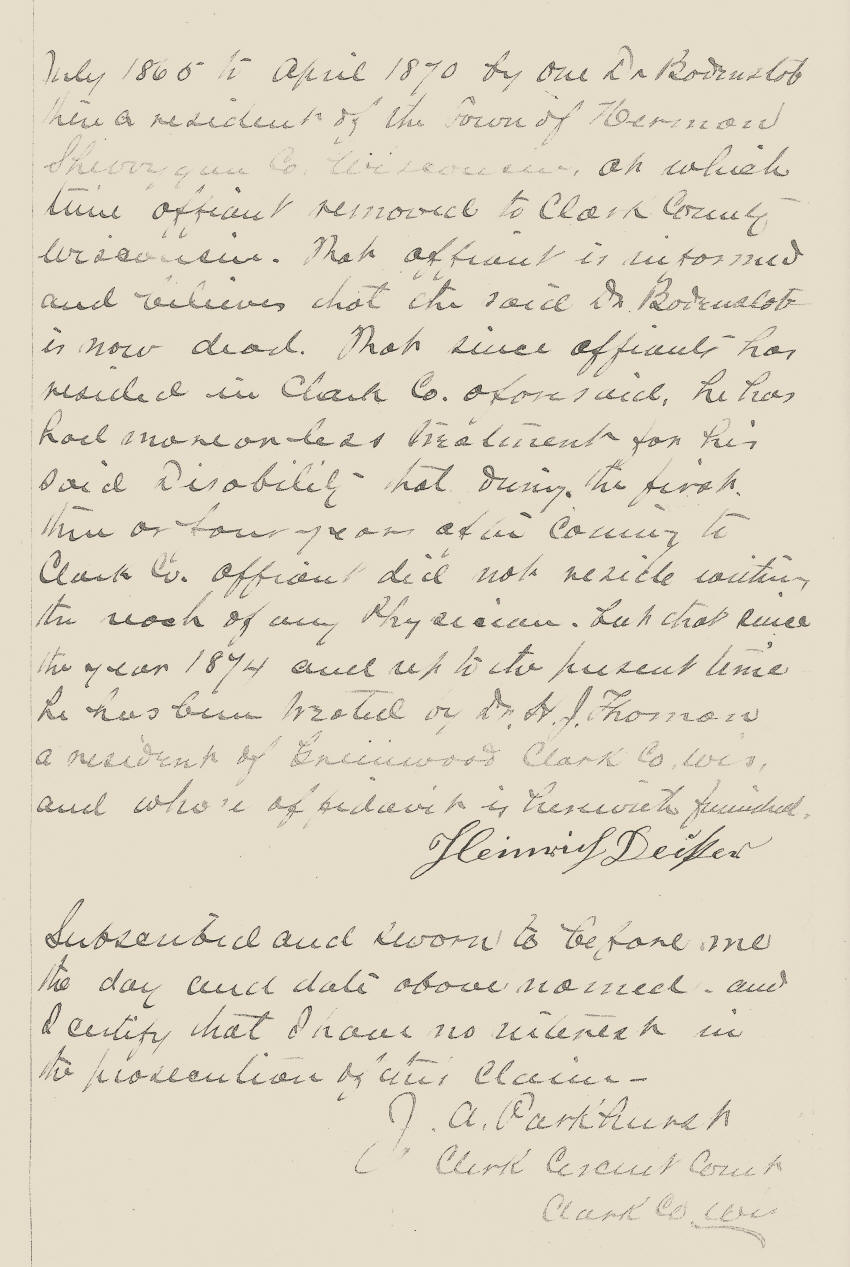 July 1865 to April 1870 by one Dr Bodenstab
then a resident of the Town of Herman
Sheboygan Co. Wisconsin, at which
time affiant removed to Clark County
Wisconsin. That affiant is informed
and believes that the said Dr. Bodenstab
is now dead. That since affiant has
resided in Clark Co. aforesaid, he has
had more or less treatment for his
said Disability that during the first
three or four years after coming to
Clark Co. affiant did not reside within
the reach of any Physician. but that since
the year 1874 and up to the present time
he has been treated by Dr. H. J. Thomas
a resident of Greenwood Clark Co. Wis,
and whose affidavit is herewith furnished.
Heinrich Decker
Subscribed and sworn to before me
the day and date above named - and
I certify that I have no interest in
the prosecution of this Claim -
J. A. Parkhurst
Clerk Circuit Court
Clark Co. Wis